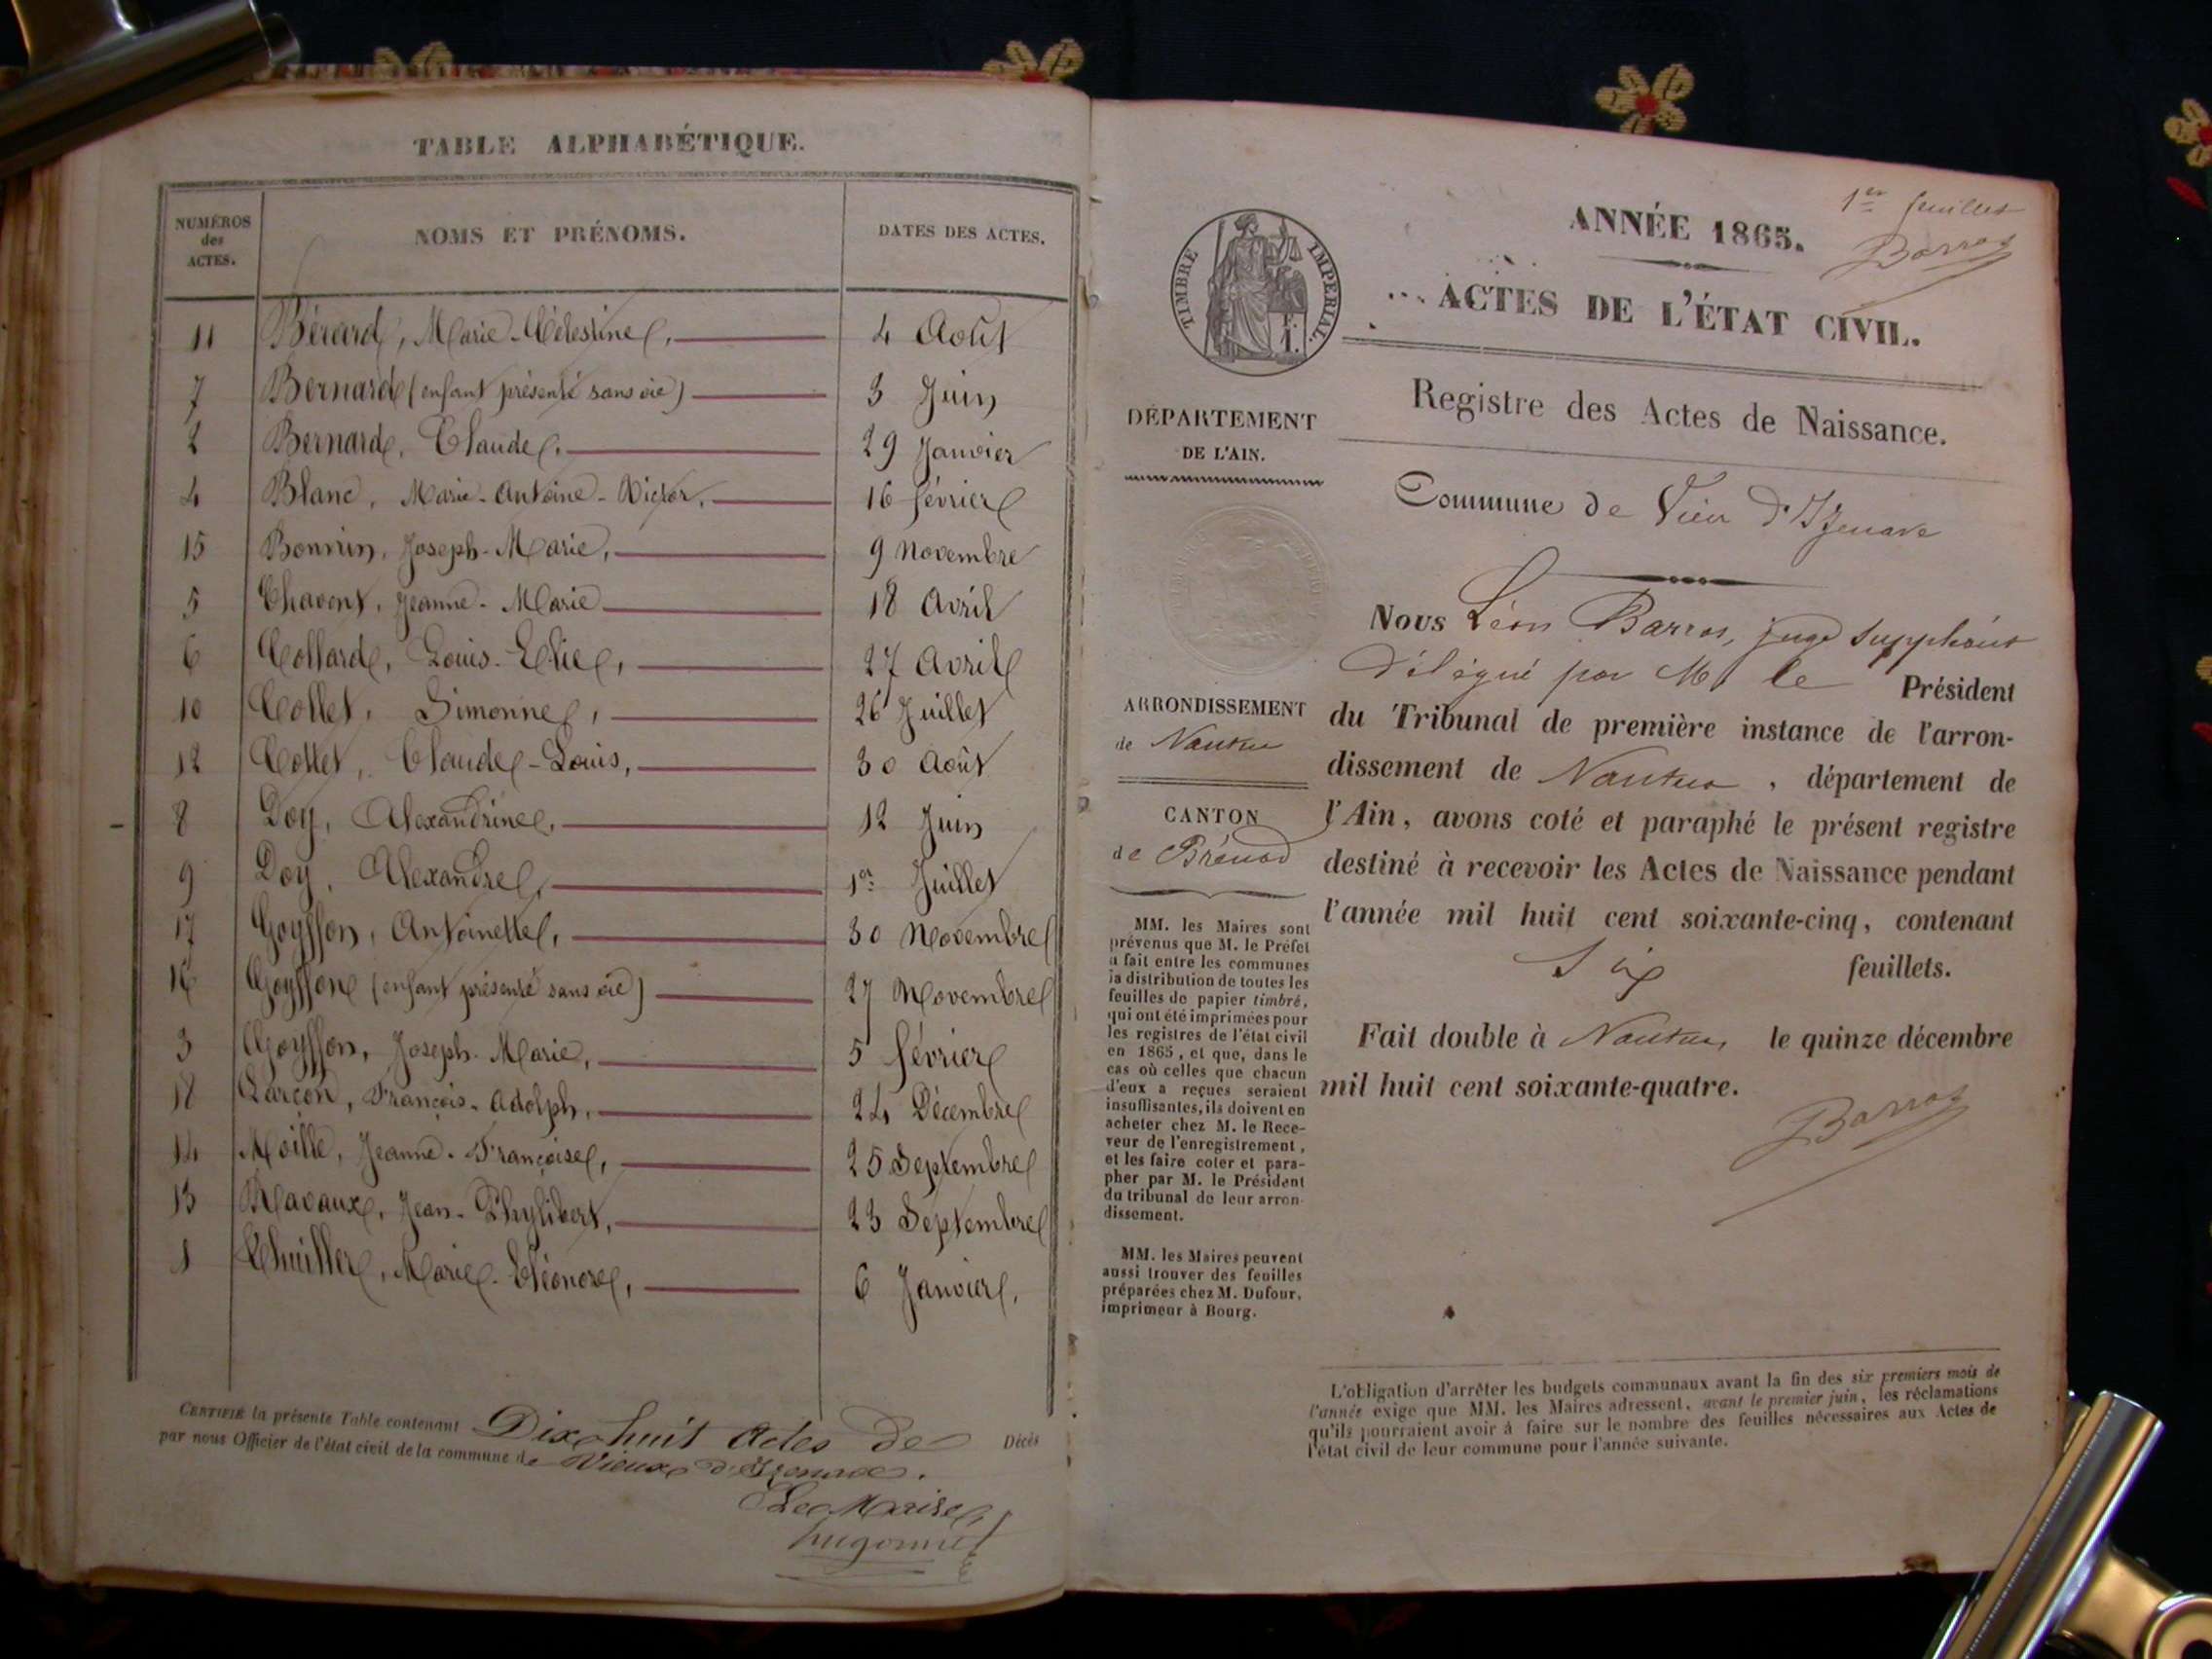 TABLE ALPHABÉTIQUE.
NUMÉROS des ACTES. NOMS ET PRÉNOMS. DATES DES ACTES.
11 Bérard, Marie-Célestine, 4 Août
7 Bernard (enfant présenté sans vie) 3 Juin
2 Bernard, Claude, 29 Janvier
4 Blanc, Marie-Antoine-Victor, 16 février
15 Bonnin, Joseph-Marie, 9 Novembre
5 Chavent, Jeanne-Marie 18 Avril
6 Collard, Louis-Elie, 27 Avril
10 Collet, Simonne, 26 Juillet
12 Collet, Claude-Louis, 30 Août
8 Doy, Alexandrine, 12 Juin
9 Doy, Alexandre, 1er Juillet
17 Goyffon, Antoinette, 30 Novembre
16 Goyffon (enfant présenté sans vie) 27 Novembre
3 Goyffon, Joseph-Marie, 5 février
18 Larçon, François-Adolph, 24 Décembre
14 Moille, Jeanne-Françoise, 25 Septembre
13 Ravaux, Jean-Phylibert, 23 Septembre
1 Thuiller, Marie-Eléonore, 6 Janvier.
CERTIFIÉ la présente Table contenant Dix-huit Actes de Décès
par nous Officier de l'état civil de la commune de Vieux d'Izenave.
Le Maire,
hugonnet
1er feuillet
Barros
ANNÉE 1865.
ACTES DE L'ÉTAT CIVIL.
TIMBRE IMPERIAL.
F. 1.
Registre des Actes de Naissance.
DÉPARTEMENT
DE L'AIN.
Commune de Vieu d'Izenave
Nous Léon Barros, juge suppléant
délégué par M. le Président
du Tribunal de première instance de l'arron-
dissement de Nantua, département de
l'Ain, avons coté et paraphé le présent registre
destiné à recevoir les Actes de Naissance pendant
l'année mil huit cent soixante-cinq, contenant
Six feuillets.
Fait double à Nantua, le quinze décembre
mil huit cent soixante-quatre.
Barros
ARRONDISSEMENT
de Nantua
CANTON
de Brénod
MM. les Maires sont
prévenus que M. le Préfet
a fait entre les communes
la distribution de toutes les
feuilles de papier timbré,
qui ont été imprimées pour
les registres de l'état civil
en 1865, et que, dans le
cas où celles que chacun
d'eux a reçues seraient
insuffisantes, ils doivent en
acheter chez M. le Rece-
veur de l'enregistrement,
et les faire coter et para-
pher par M. le Président
du tribunal de leur arron-
dissement.
MM. les Maires peuvent
aussi trouver des feuilles
préparées chez M. Dufour,
imprimeur à Bourg.
L'obligation d'arrêter les budgets communaux avant la fin des six premiers mois de
l'année exige que MM. les Maires adressent, avant le premier juin, les réclamations
qu'ils pourraient avoir à faire sur le nombre des feuilles nécessaires aux Actes de
l'état civil de leur commune pour l'année suivante.